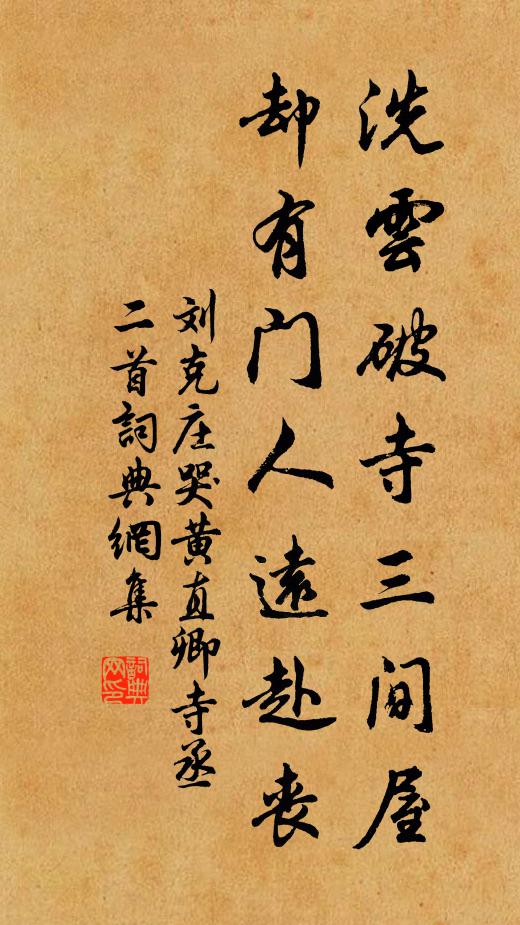 洗雲破寺三间屋
却有门人遠赴喪
刘克庄哭黄直卿寺丞
二首詞典網集
詞典网印